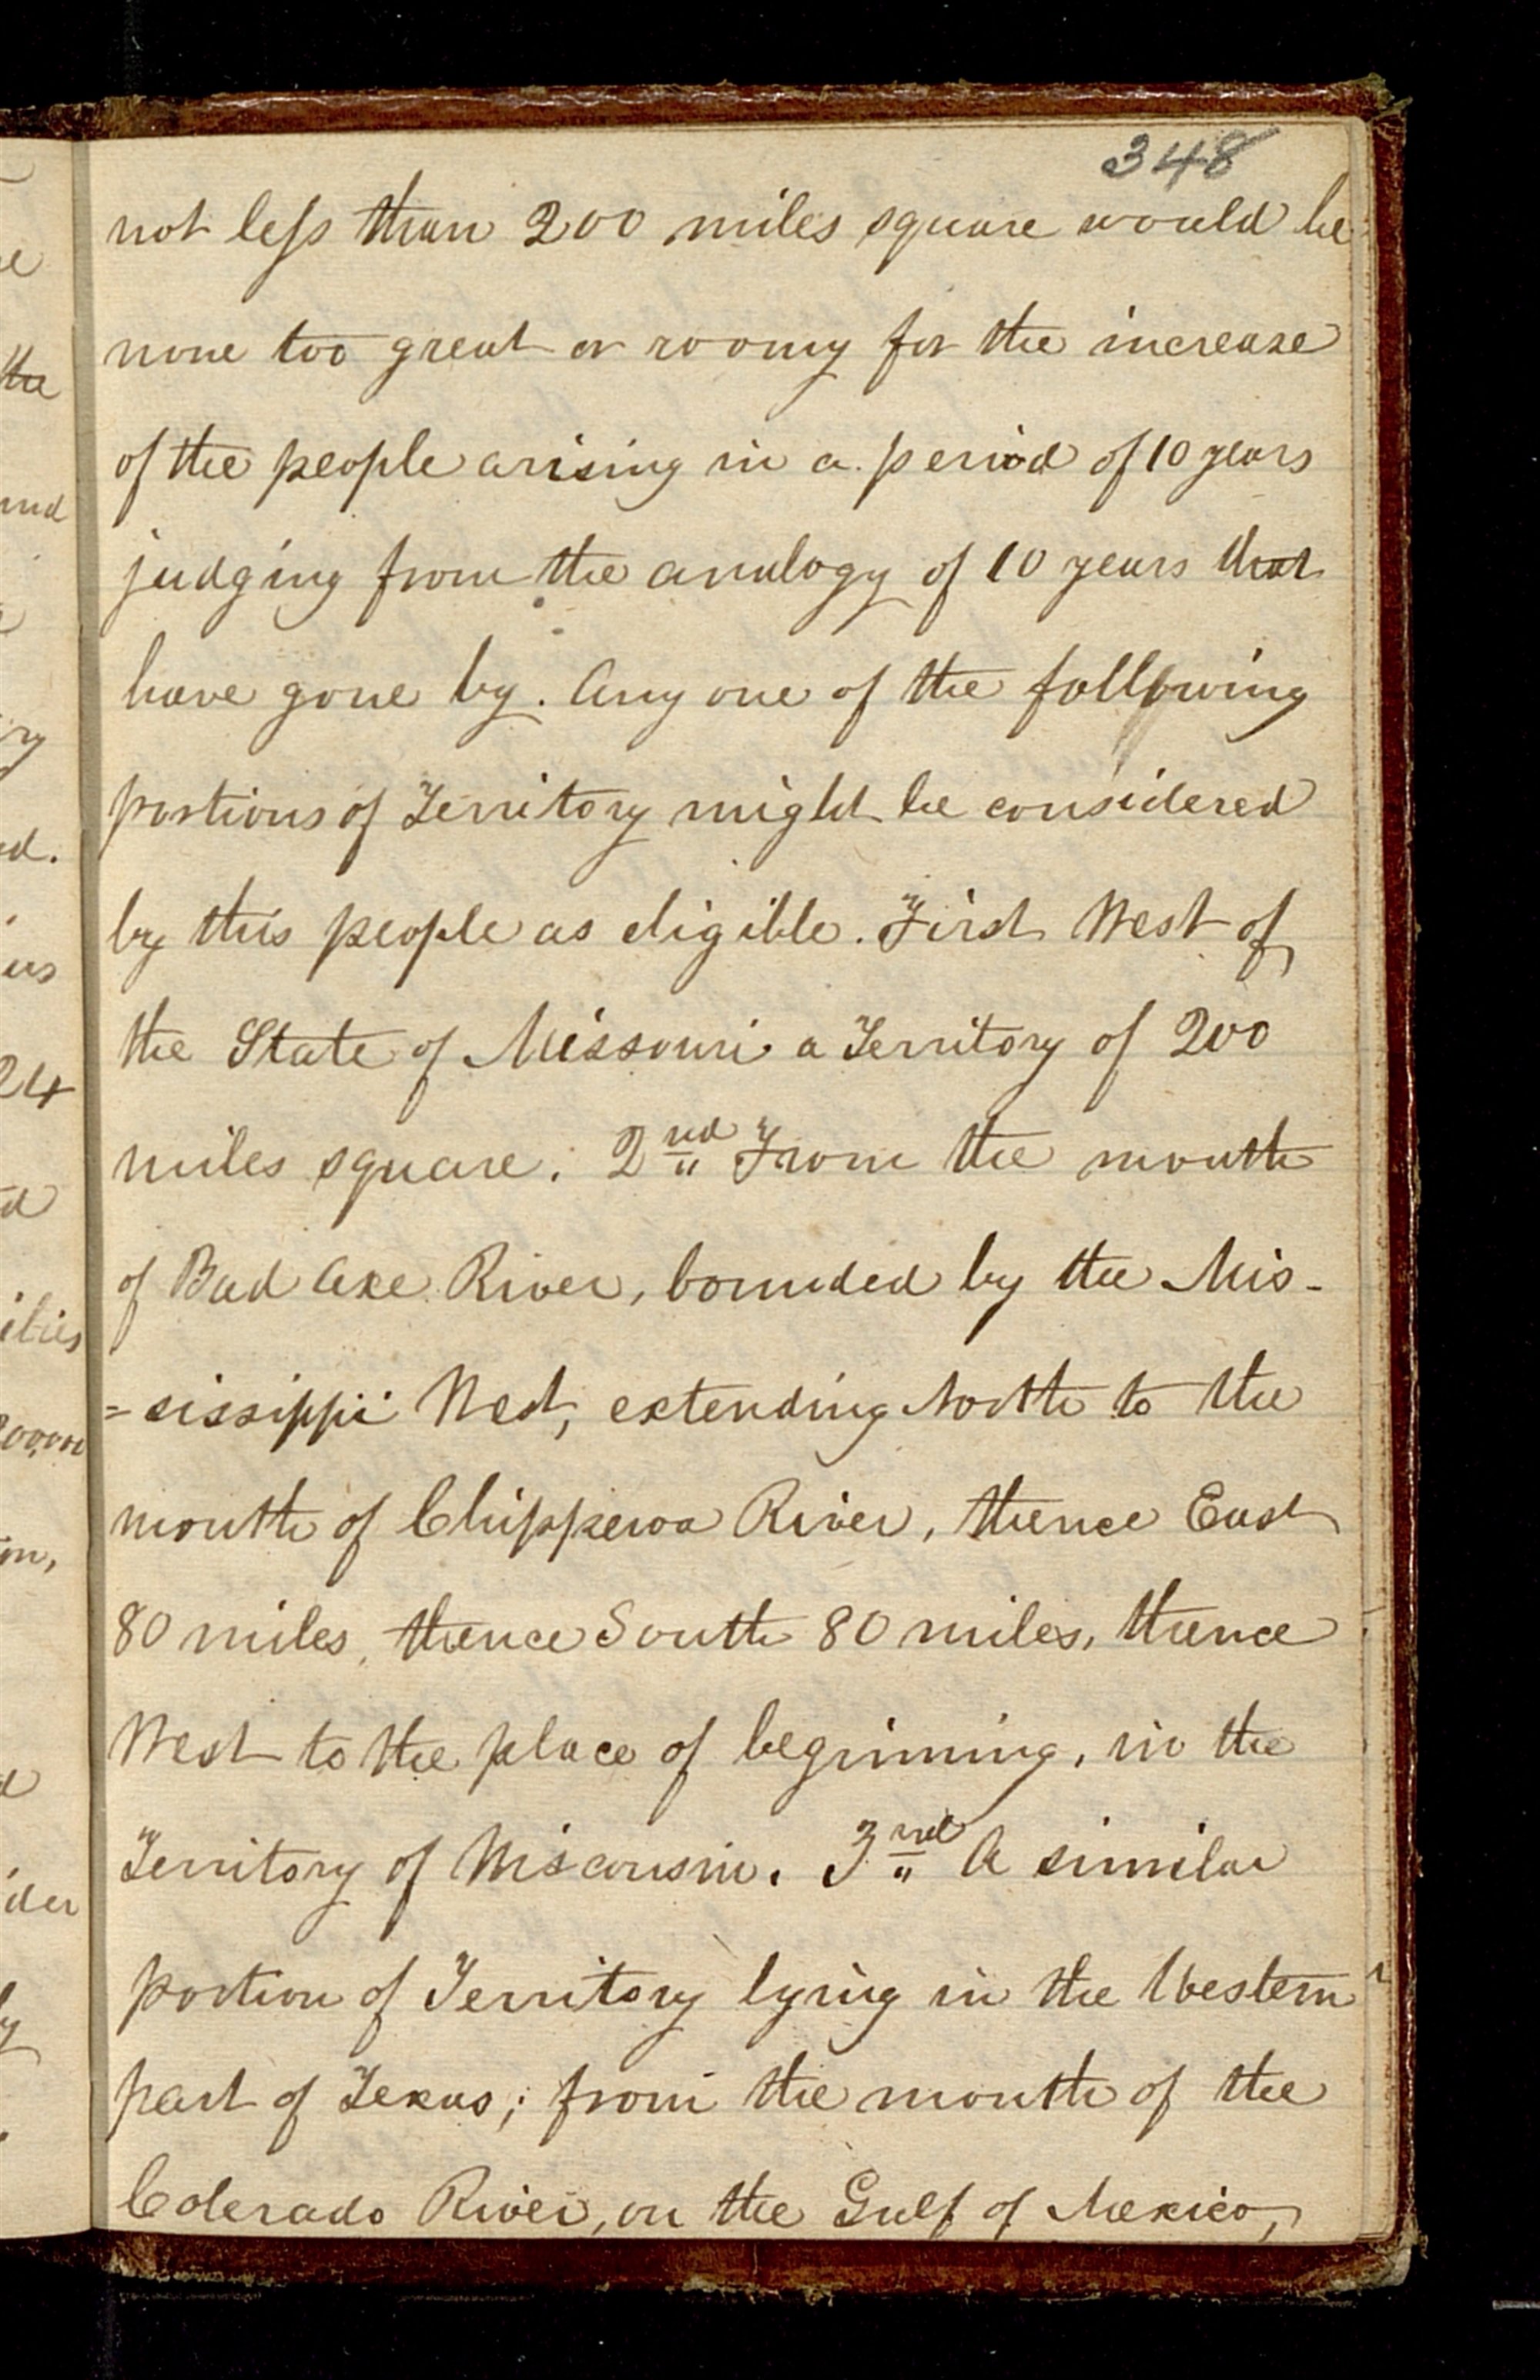 348
not less than 200 miles square would be
none too great or roomy for the increase
of the people arising in a period of 10 years
judging from the analogy of 10 years that
have gone by. Any one of the following
portions of Territory might be considered
by this people as eligible. First West of
the State of Missouri a Territory of 200
miles square. 2nd From the mouth
of Bad Axe River, bounded by the Mis-
=sissippi West, extending North to the
mouth of Chippewa River, thence East
80 miles, thence South 80 miles, thence
West to the place of beginning, in the
Territory of Wisconsin. 3rd A similar
portion of Territory lying in the Western
part of Texas; from the mouth of the
Colerado River, on the Gulf of Mexico,
the
and
ry
d.
us
24
ities
der